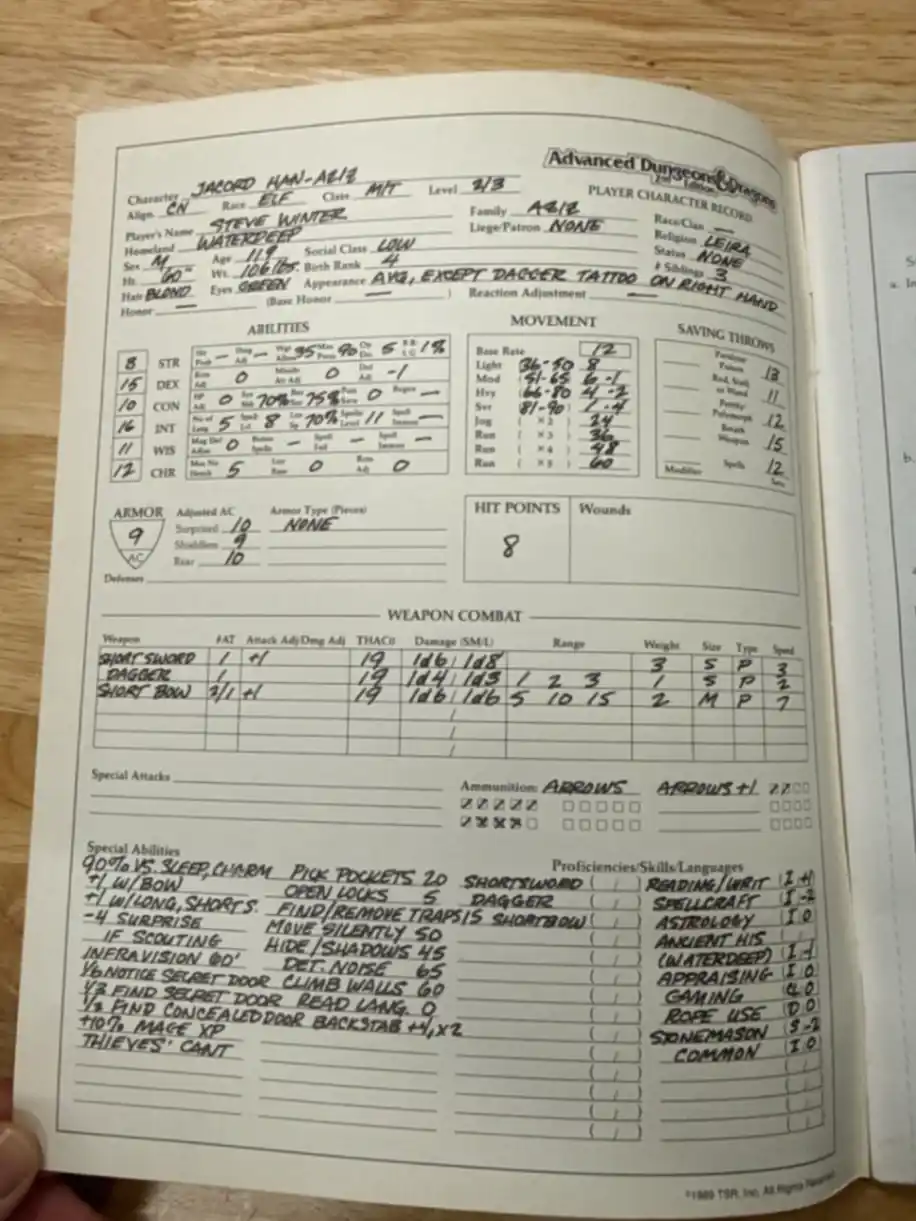 Advanced Dungeons & Dragons
2nd Edition
PLAYER CHARACTER RECORD
Character JACORD HAN-AZIZ
Align. CN Race ELF Class M/T Level 2/3
Player's Name STEVE WINTER Family AZIZ Race/Clan —
Homeland WATERDEEP Liege/Patron NONE Religion LEIRA
Sex M Age 119 Social Class LOW Status NONE
Ht. 60" Wt. 106 lbs. Birth Rank 4 # Siblings 3
Hair BLOND Eyes GREEN Appearance AVG, EXCEPT DAGGER TATTOO ON RIGHT HAND
Honor — (Base Honor — ) Reaction Adjustment —
ABILITIES
8 STR Hit Prob — Dmg Adj — Wgt Allow 35 Max Press 90 Op Drs 5 B.B./L.G. 1%
15 DEX Rctn Adj 0 Missile Att Adj 0 Def Adj -1
10 CON HP Adj 0 Sys Shk 70% Res Sur 75% Pois Save 0 Regen —
16 INT No of Lang 5 Spell Lvl 8 Lrn Sp 70% Spells/Level 11 Spell Immun —
11 WIS Mag Def Adj 0 Bonus Spells — Spell Fail — Spell Immun —
12 CHR Max No Hench 5 Loy Base 0 Rctn Adj 0
MOVEMENT
Base Rate 12
Light 36-50 8
Mod 51-65 6 -1
Hvy 66-80 4 -2
Svr 81-90 1 -4
Jog ( ×2 ) 24
Run ( ×3 ) 36
Run ( ×4 ) 48
Run ( ×5 ) 60
SAVING THROWS
Paralyze Poison 13
Rod, Staff or Wand 11
Petrify Polymorph 12
Breath Weapon 15
Spells 12
Modifier Save
ARMOR
9
AC
Adjusted AC
Surprised 10
Shieldless 9
Rear 10
Armor Type (Pieces)
NONE
Defenses
HIT POINTS
8
Wounds
WEAPON COMBAT
Weapon #AT Attack Adj/Dmg Adj THAC0 Damage (SM/L) Range Weight Size Type Speed
SHORT SWORD 1 +1 19 1d6 / 1d8 3 S P 3
DAGGER 1 19 1d4 / 1d3 1 2 3 1 S P 2
SHORT BOW 2/1 +1 19 1d6 / 1d6 5 10 15 2 M P 7
Special Attacks
Ammunition: ARROWS ARROWS +1
Special Abilities
90% VS. SLEEP, CHARM
+1 W/BOW
+1 W/LONG, SHORT S.
-4 SURPRISE
IF SCOUTING
INFRAVISION 60'
1/6 NOTICE SECRET DOOR
1/3 FIND SECRET DOOR
1/2 FIND CONCEALED DOOR
+10% MAGE XP
THIEVES' CANT
PICK POCKETS 20
OPEN LOCKS 5
FIND/REMOVE TRAPS 15
MOVE SILENTLY 50
HIDE/SHADOWS 45
DET. NOISE 65
CLIMB WALLS 60
READ LANG. 0
BACKSTAB +4, x2
Proficiencies/Skills/Languages
SHORTSWORD
DAGGER
SHORTBOW
READING/WRIT (I +1
SPELLCRAFT (I -2
ASTROLOGY (I 0
ANCIENT HIS
(WATERDEEP) (I -1
APPRAISING (I 0
GAMING 0
ROPE USE (D 0
STONEMASON (S -2
COMMON (I 0
©1989 TSR, Inc. All Rights Reserved